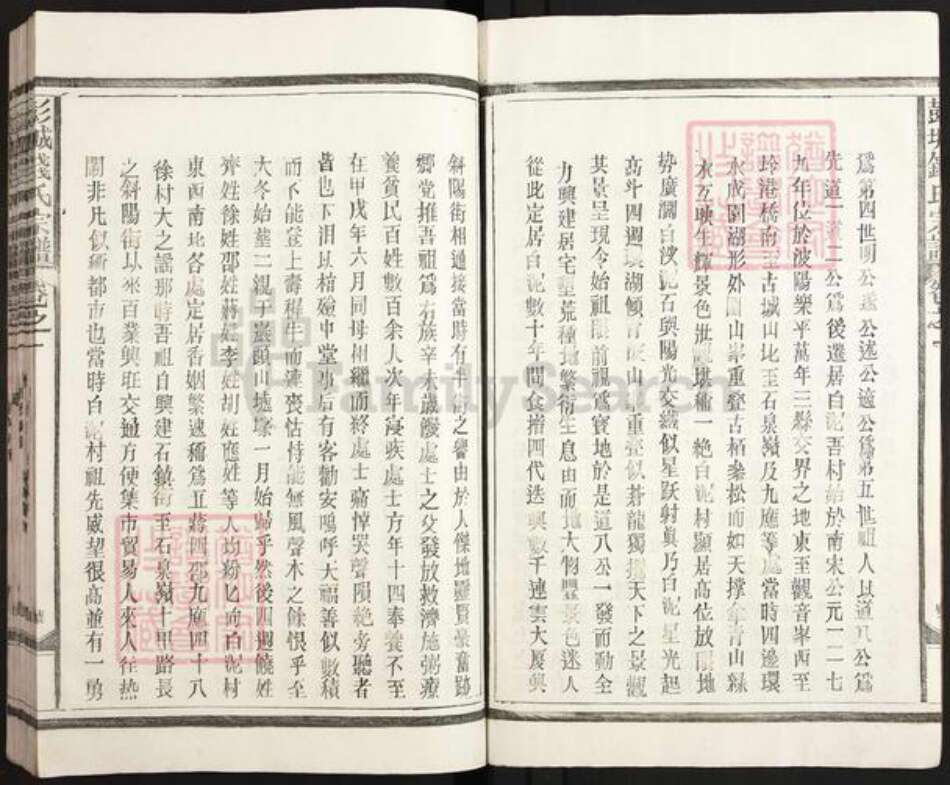 為第四世明公遠公述公適公為第五世祖人以道八公為
先道一 二公為後遷居白泥吾村始於南宋公元一一二七
九年位於波陽樂平萬年三縣交界之地東至觀音寨西至
玲港橋南至古城山北至石泉嶺及九應等處當時四邊環
水成園湖形外圍山峯重叠古栢參松而如天撐傘青山綠
水互映生輝景色壯麗堪稱一絕白泥村顯居高位放眼地
勢廣濶白泥石與陽光交織似星跃射真乃白泥星光起
高斗四週環湖傾 山 重叠似蒼龍獨 天下之景觀
其景呈現今始祖眼前視為寶地於是道八公一發而動全
力興建居宅墾荒種地繁衍生息由而地大物豐景色迷人
從此定居白泥數十年間食指四代迭興數千連雲大厦興
斜陽街相通接當時有 之譽由於人傑地靈賢彙蓄跡
鄉党推吾祖為右族辛未歲饑處士之父發放救濟施粥療
養貧民百姓數百余人次年寢疾處士方年十四奉養不至
在甲戊年六月同母相繼而終處士痛悼哭聲隕絕旁聽者
皆也下泪以棺殮中堂事后有客勸安嗚呼大福善似數積
而不能登上壽稚牛而連喪怙恃能無風聲木之餘恨乎至
大冬始塟二親于嚴頭山墟塚一月始歸乎然後四週饒姓
齊姓徐姓邵姓蔣姓李姓胡姓應姓等人均紛匕向白泥村
東西南北各處定居香烟繁速稱為五蔣四邵九應四十八
徐村大之謡那時吾祖自興建石鎮街至石泉嶺十里路長
之斜陽街以來百業興旺交通方便集市貿易人來人往熱
鬧非凡似稱都市也當時白泥村祖先威望很高並有一勇
彭城錢氏宗譜
卷之一